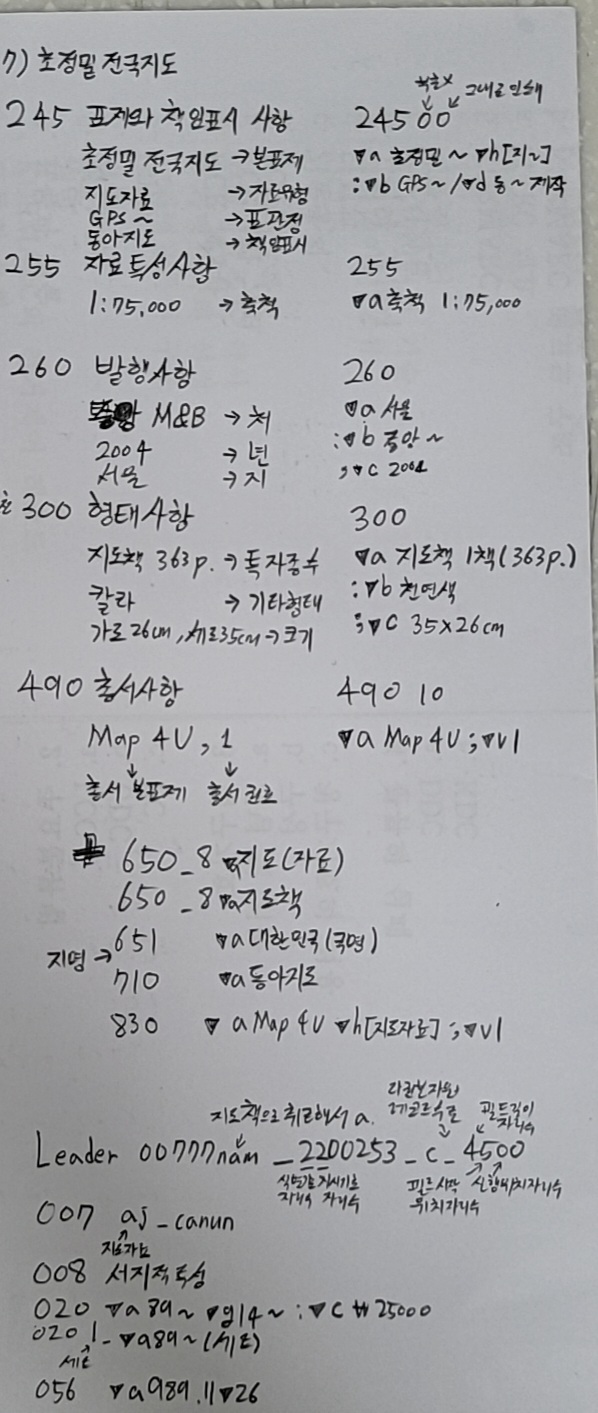 7) 초정밀 전국지도
그대로 인쇄
245 표제와 책임표시 사항 24500
초정밀 전국지도 → 본표제 ▼a 초정밀~ ▼h[지~]
지도자료 → 자료유형 :▼b GPS~/▼d 동~제작
GPS~ → 표관정
동아지도 → 책임표시
255 자료특성사항 255
1:75,000 → 축척 ▼a축척 1:75,000
260 발행사항 260
M&B → 처 ▼a 서울
2004 → 년 :▼b 중앙~
서울 → 지 ,▼c 2004
300 형태사항 300
지도책 363p. → 특자종수 ▼a 지도책 1책(363p.)
칼라 → 기타형태 :▼b 천연색
가로26cm, 세로35cm → 크기 ;▼c 35x26cm
490 총서사항 490 10
Map 4U, 1 ▼a Map 4U ;▼v1
↓ ↓
총서 본표제 총서 권호
650_8 ▼a지도(자료)
650_8 ▼a지도책
지명 → 651 ▼a대한민국(국명)
710 ▼a동아지도
830 ▼a Map 4U ▼h[지도자료] ;▼v1
지도책으로 취급해서 a. 필드길이
자리수
Leader 00777nam_2200253_c_4500
식별기호 지시기호 필드시작
자리수 자리수 위치자리수
007 aj_canun
지도자료
008 서지적 특성
020 ▼a 89~ ▼g14~ :▼c ₩25000
020 1_ ▼a89~(세트)
세트
056 ▼a989.11▼26